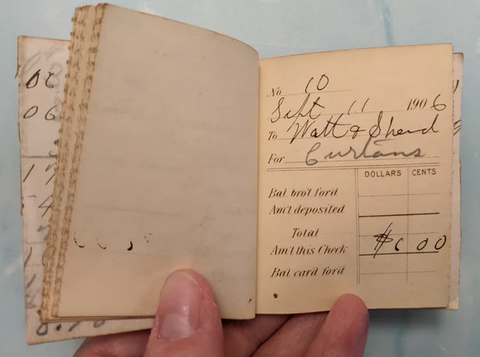 No 10
Sept 11 1906
To Watt & Shand
For Curtans
DOLLARS CENTS
Bal bro't ford
Am't deposited
Total
Am't this Check $6 00
Bal card ford